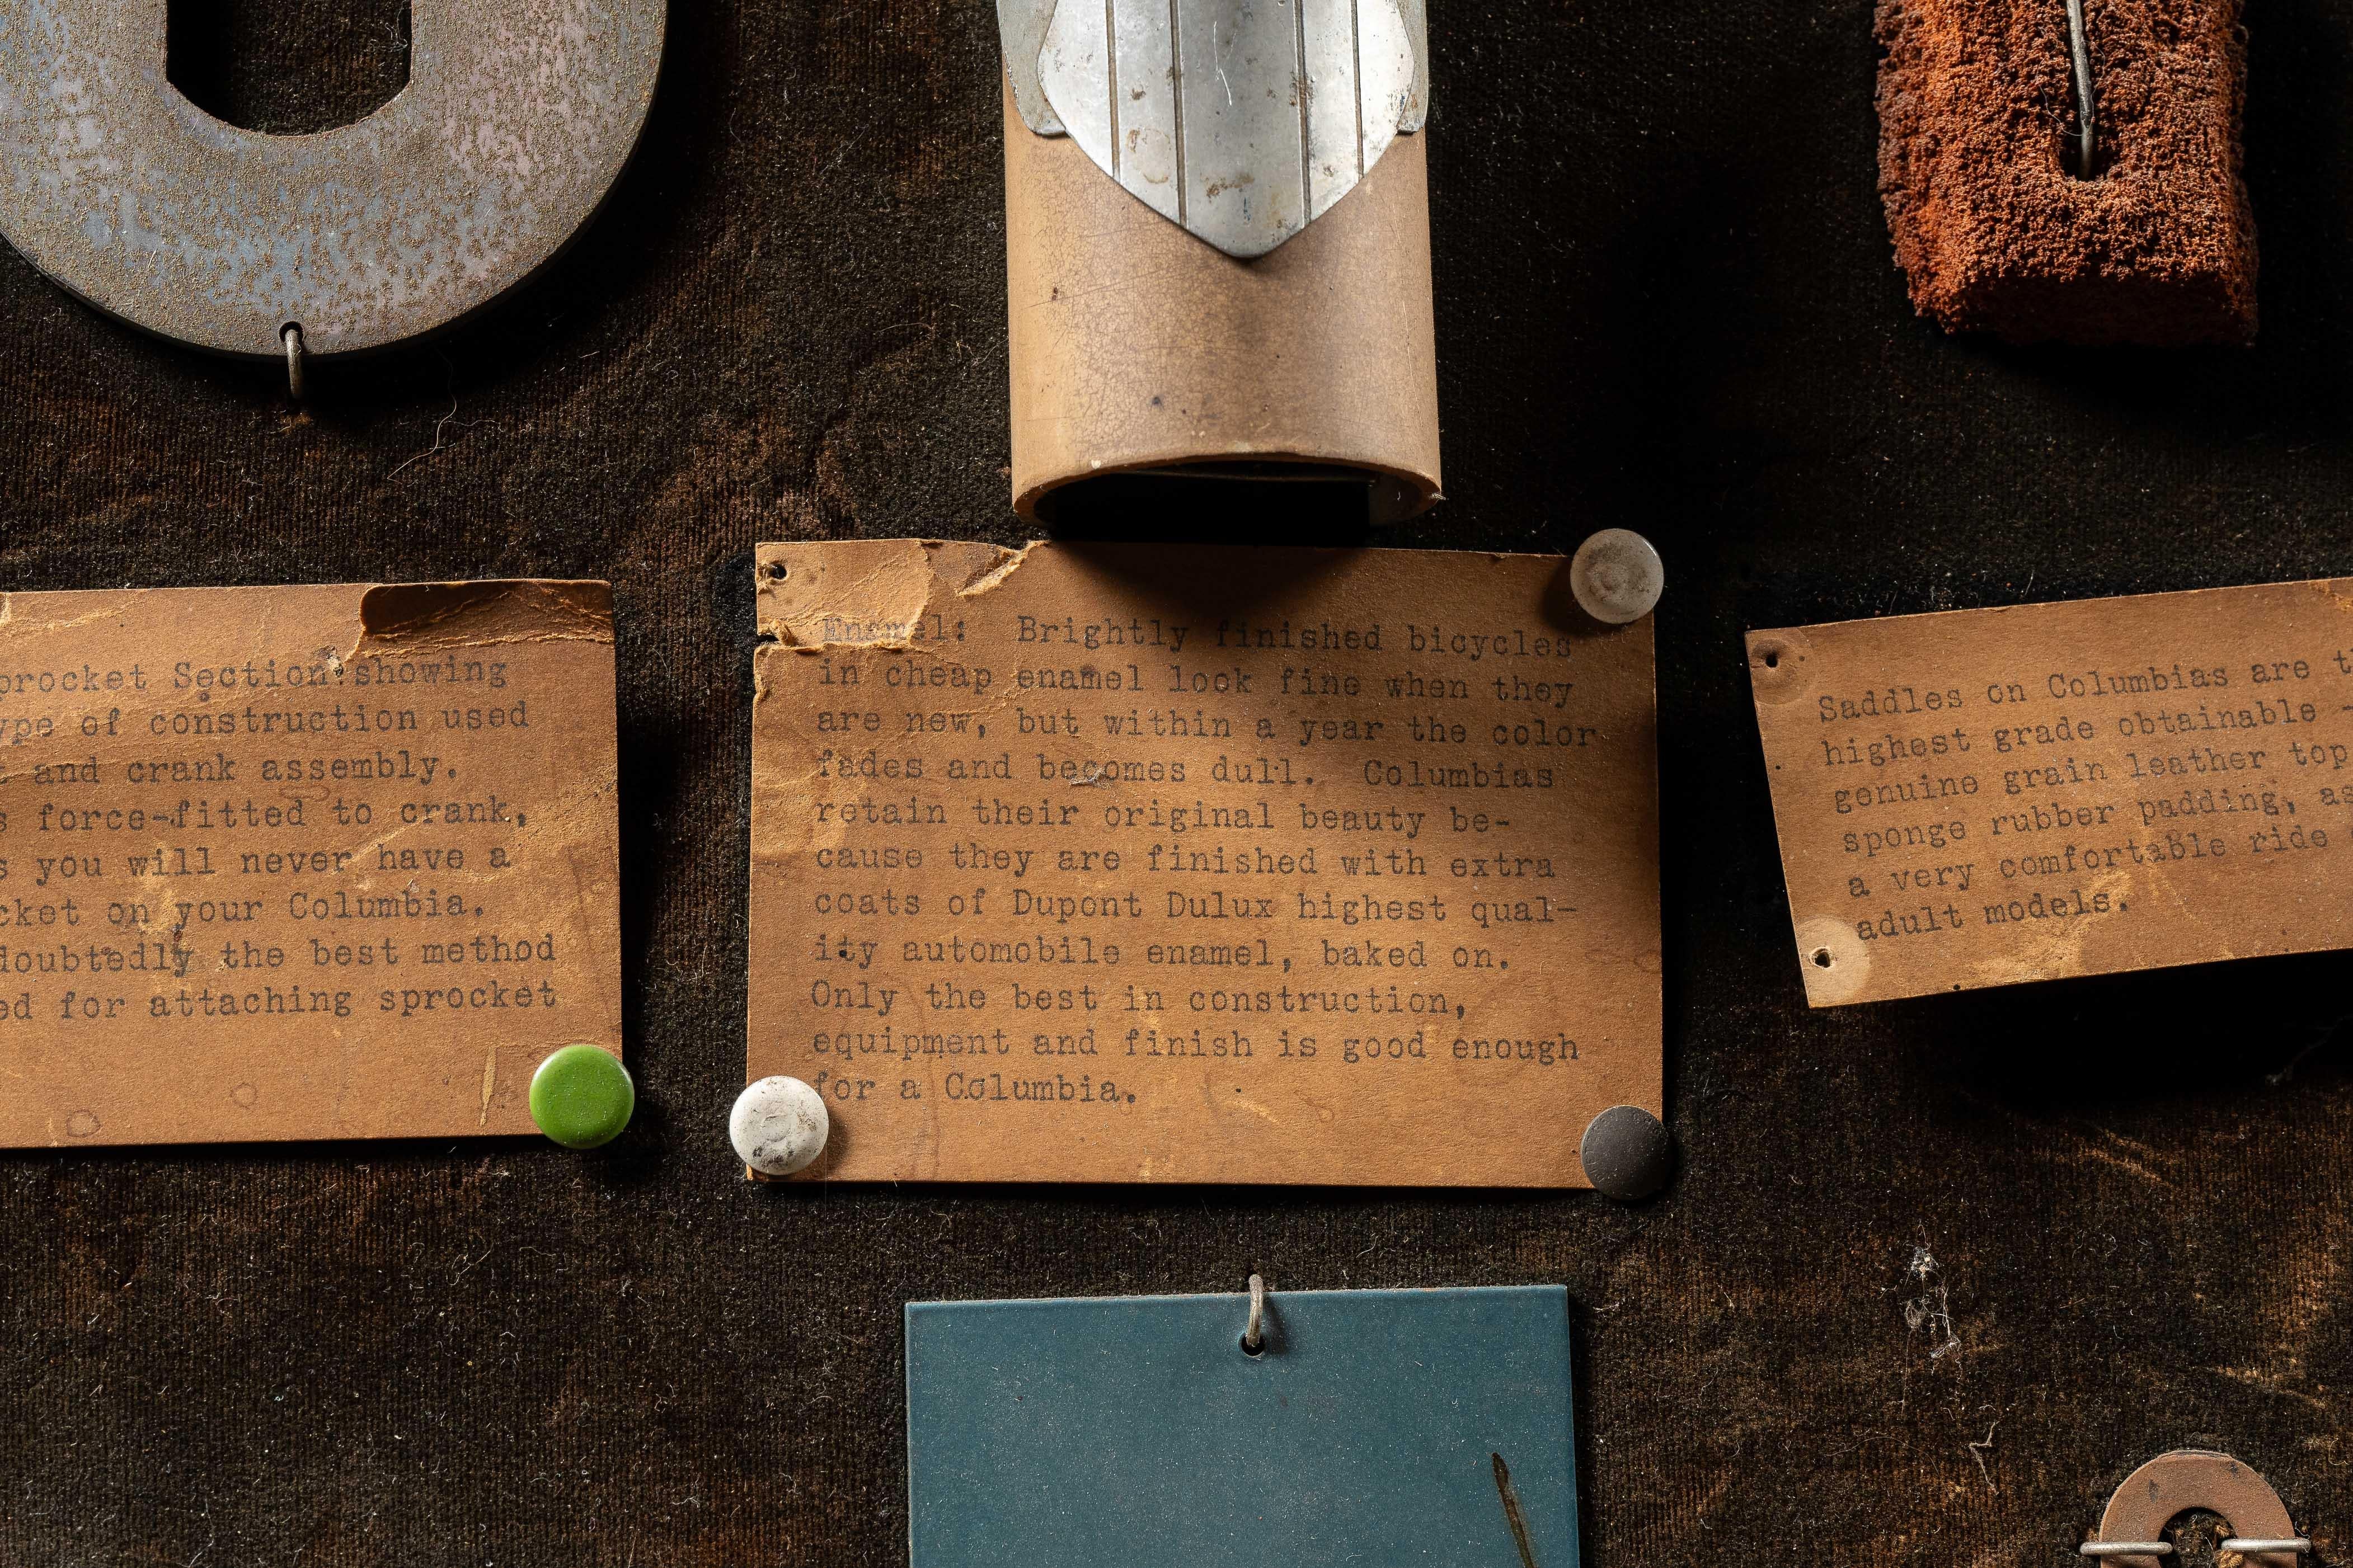 Section showing
of construction used
and crank assembly.
force-fitted to crank,
you will never have a
on your Columbia.
the best method
for attaching sprocket
Enamel: Brightly finished bicycles
in cheap enamel look fine when they
are new, but within a year the color
fades and becomes dull. Columbias
retain their original beauty be-
cause they are finished with extra
coats of Dupont Dulux highest qual-
ity automobile enamel, baked on.
Only the best in construction,
equipment and finish is good enough
for a Columbia.
Saddles on Columbias are
highest grade obtainable -
genuine grain leather top
sponge rubber padding, as
a very comfortable ride
adult models.